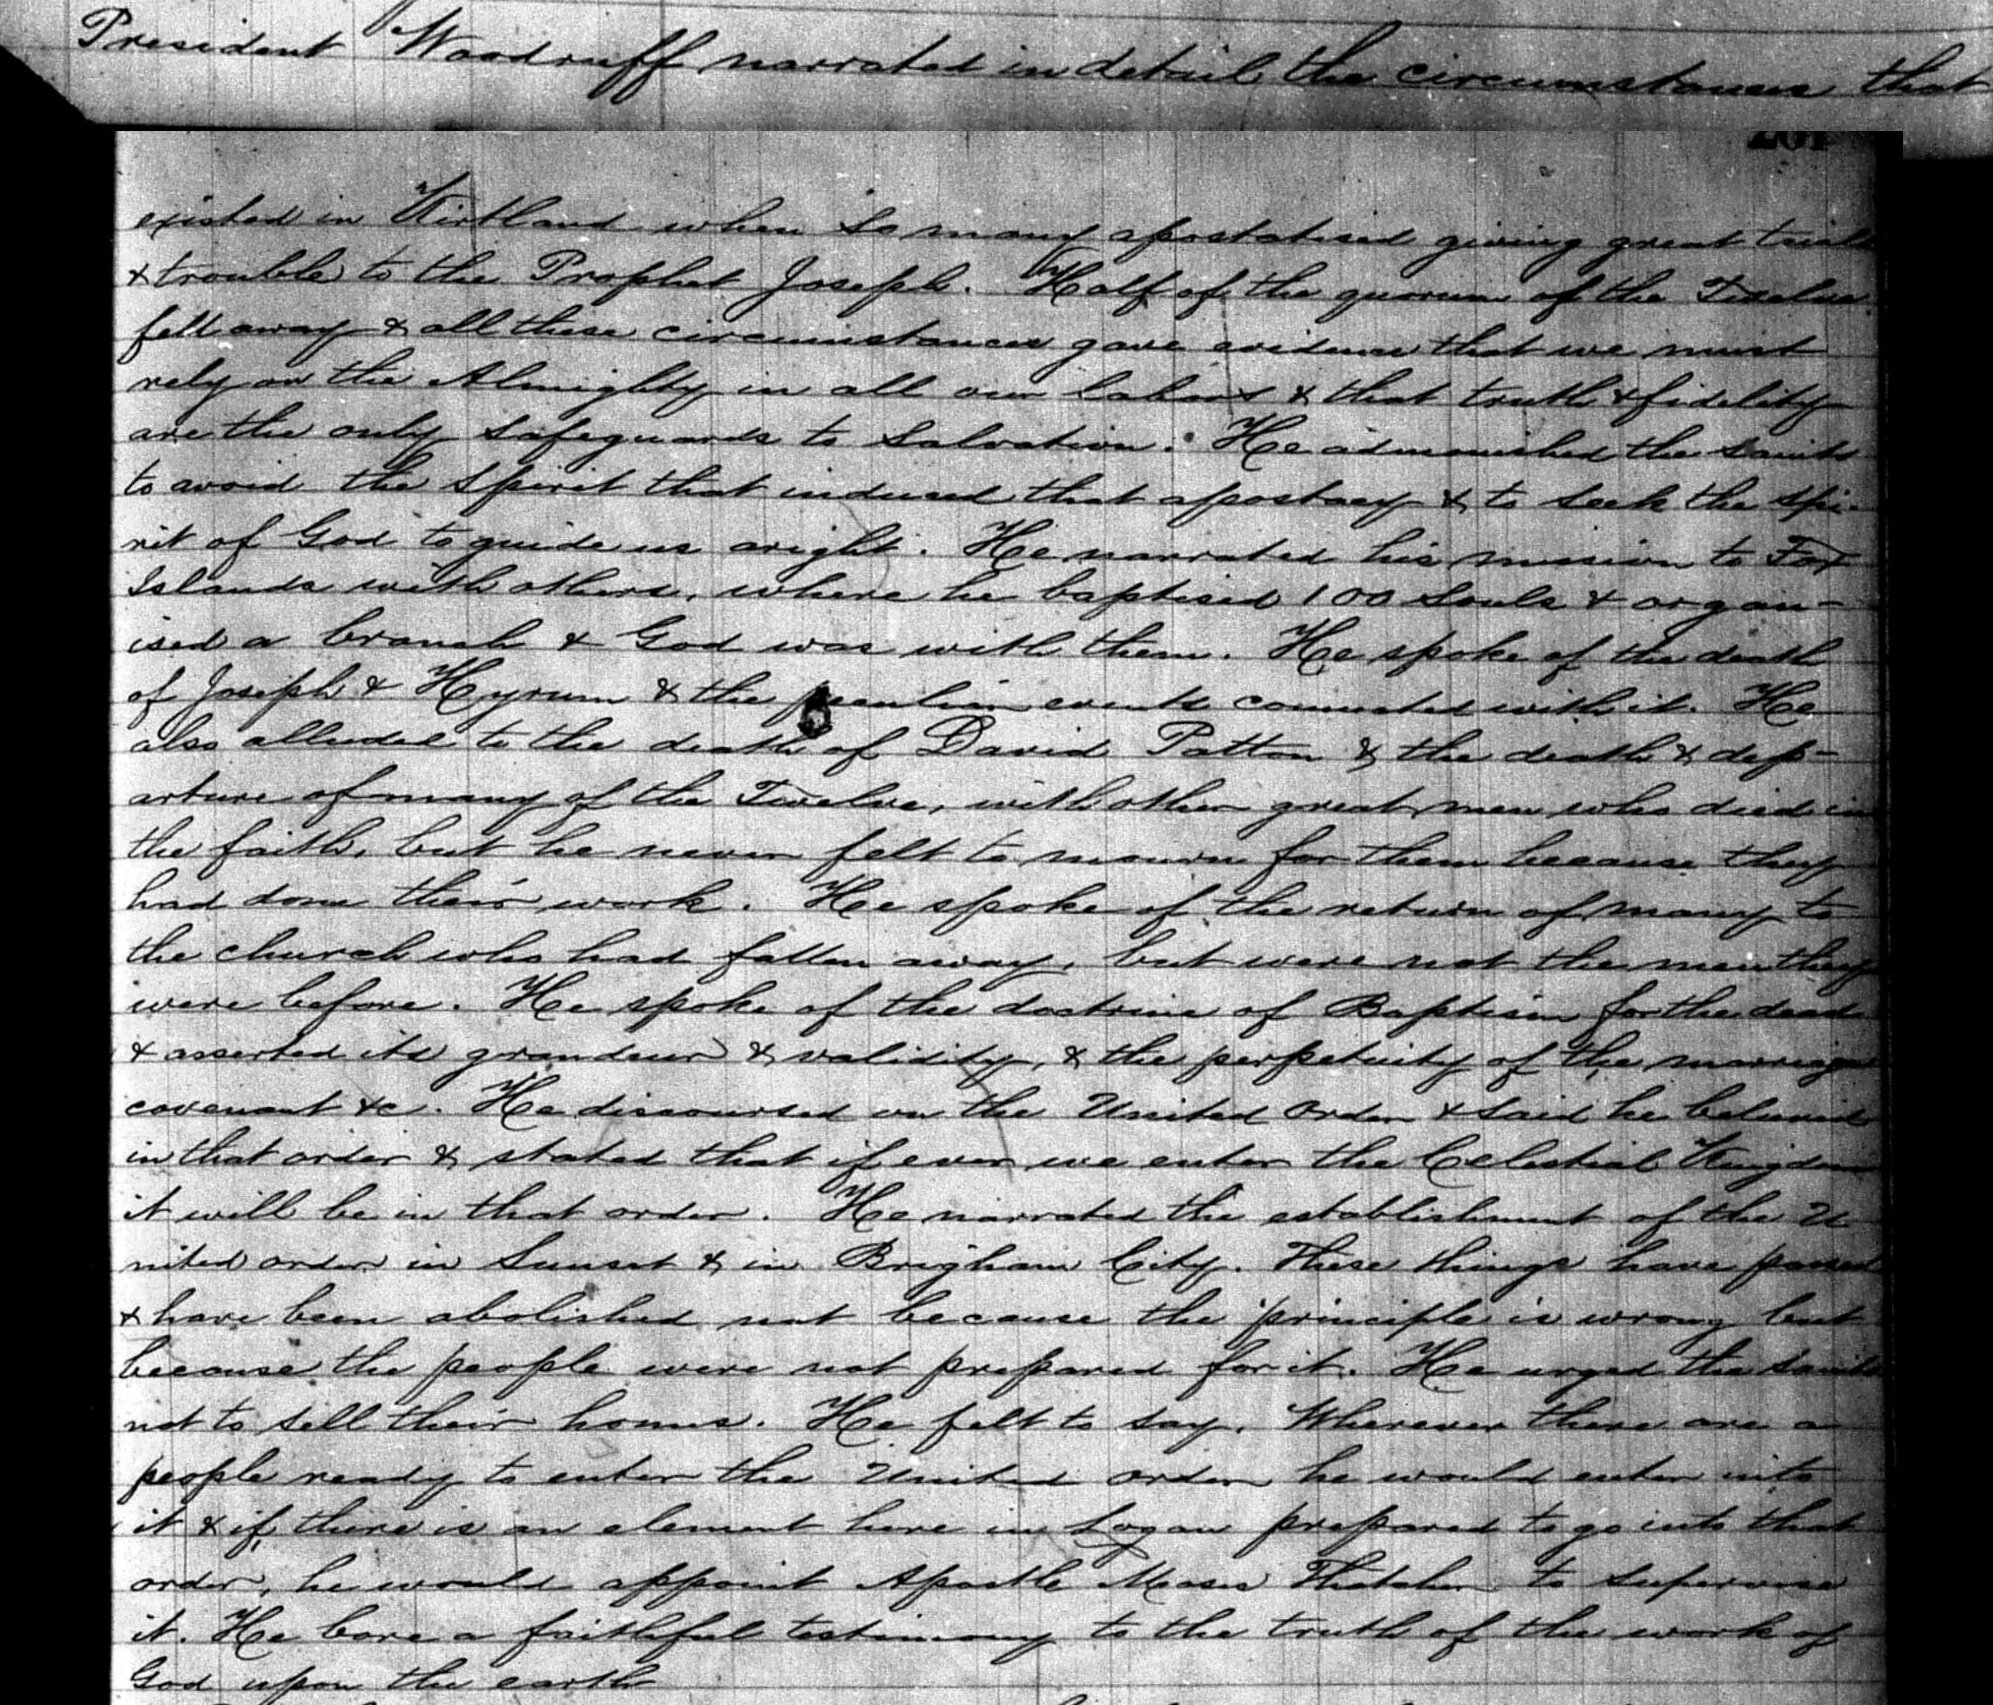 President Woodruff narrated in detail the circumstances that
201
existed in Kirtland when so many apostatised giving great trials
& trouble to the Prophet Joseph. Half of the quorum of the Twelve
fell away & all these circumstances gave evidence that we must
rely on the Almighty in all our labors & that truth & fidelity
are the only safeguards to salvation. He admonished the saints
to avoid the spirit that induced that apostacy & to seek the spi-
rit of God to guide us aright. He narrated his mission to Fox
Islands with others, where he baptised 100 souls & organ-
ised a branch & God was with them. He spoke of the death
of Joseph & Hyrum & the peculiar events connected with it. He
also alluded to the death of David Patton & the death & dep-
arture of many of the Twelve, with other great men who died in
the faith, but he never felt to mourn for them because they
had done their work. He spoke of the return of many to
the church who had fallen away, but were not the men they
were before. He spoke of the doctrine of Baptism for the dead
& asserted its grandeur & validity, & the perpetuity of the marriage
covenant &c. He discoursed on the United Order & said he believed
in that order & stated that if ever we enter the Celestial Kingdom
it will be in that order. He narrated the establishment of the U
nited order in Sunset & in Brigham City. These things have passed
& have been abolished not because the principle is wrong but
because the people were not prepared for it. He urged the saints
not to sell their homes. He felt to say, Wherever there are a
people ready to enter the United order he would enter into
it & if there is an element here in Logan prepared to go into that
order, he would appoint Apostle Moses Thatcher to supervise
it. He bore a faithful testimony to the truth of the work of
God upon the earth